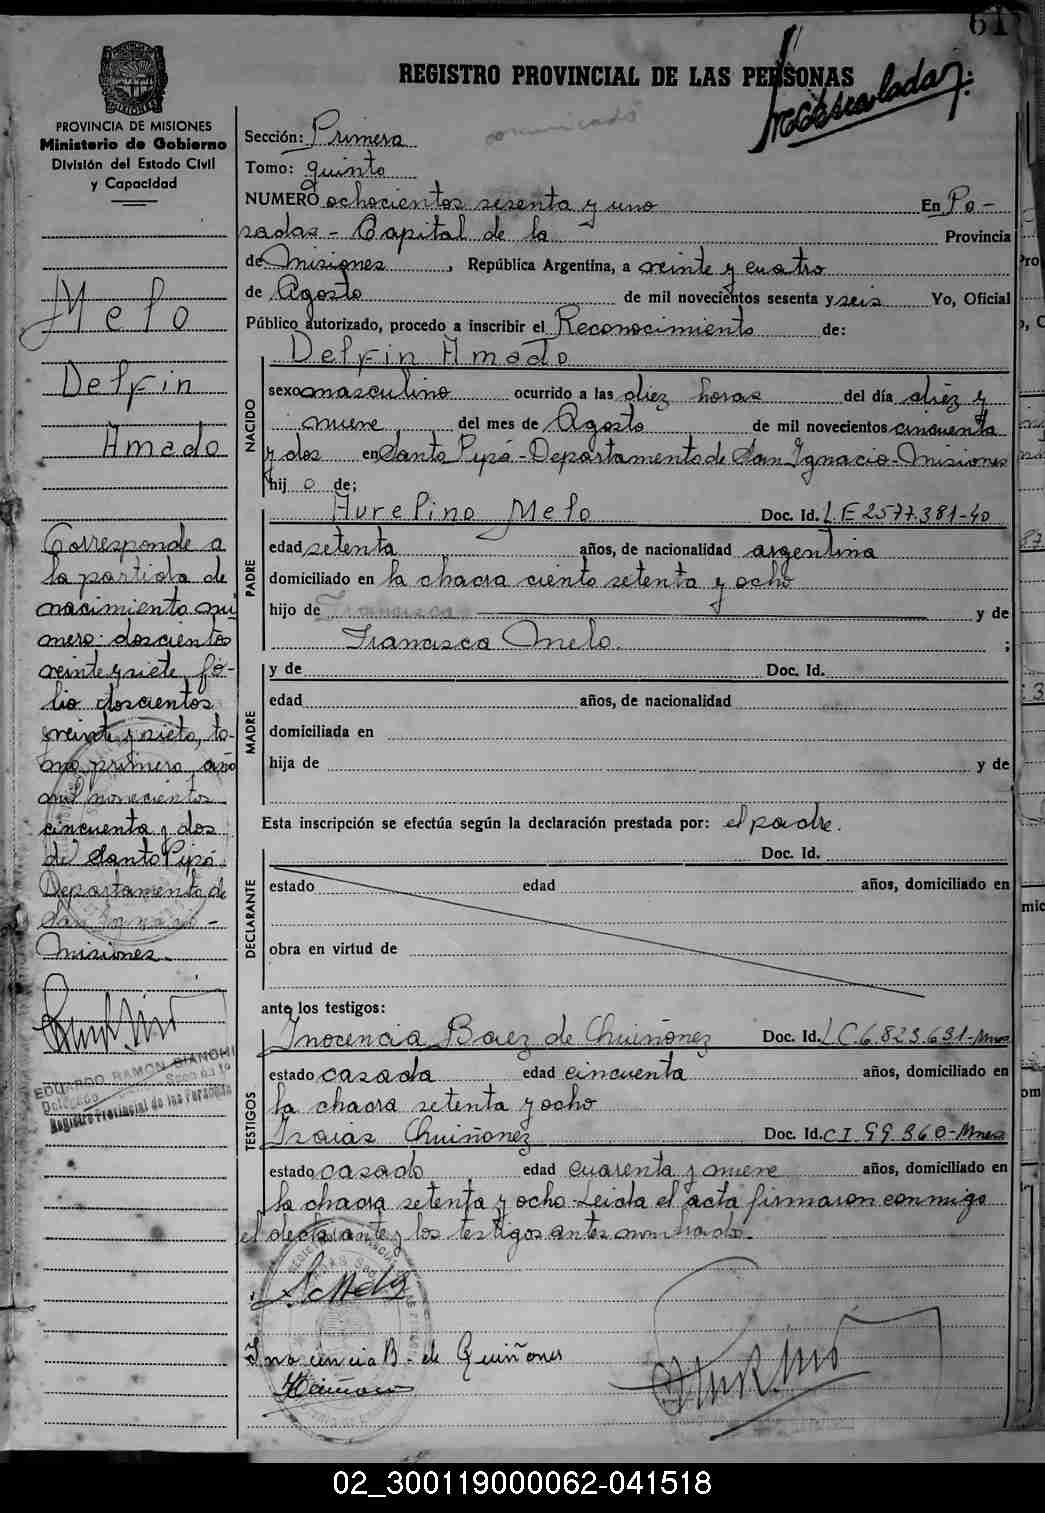 61
REGISTRO PROVINCIAL DE LAS PERSONAS
PROVINCIA DE MISIONES
Ministerio de Gobierno
División del Estado Civil
y Capacidad
Melo
Delfin
Amado
Corresponde a
la partida de
nacimiento nú
mero: doscientos
veinte y siete, fo-
lio doscientos
veinte y siete, to-
mo primero, año
mil novecientos
cincuenta y dos
de Santo Pipó.
Departamento de
San Ignacio -
Misiones.
EDUARDO RAMON BIANCHI
Delegado
Registro Provincial de las Personas
comunicado
Sección: Primera
Tomo: quinto
NUMERO ochocientos sesenta y uno En Po-
sadas - Capital de la Provincia
de Misiones , República Argentina, a veinte y cuatro
de Agosto de mil novecientos sesenta y seis Yo, Oficial
Público autorizado, procedo a inscribir el Reconocimiento de:
Delfin Amado
NACIDO
sexo masculino ocurrido a las diez horas del día diez y
nueve del mes de Agosto de mil novecientos cincuenta
y dos en Santo Pipó - Departamento de San Ignacio - Misiones
hij o de;
PADRE
Aurelino Melo Doc. Id. L E 2577.381-40
edad setenta años, de nacionalidad argentina
domiciliado en la chacra ciento setenta y ocho
hijo de Francisca y de
Francisca Melo. ;
MADRE
y de Doc. Id.
edad años, de nacionalidad
domiciliada en
hija de y de
Esta inscripción se efectúa según la declaración prestada por: el padre.
DECLARANTE
Doc. Id.
estado edad años, domiciliado en
obra en virtud de
ante los testigos:
TESTIGOS
Inocencia Baez de Chuiñonez Doc. Id. L C 6.823.631-Mnes
estado casada edad cincuenta años, domiciliado en
la chacra setenta y ocho
Isaias Chuiñonez Doc. Id. C I. 99.360-Mnes
estado casado edad cuarenta y nueve años, domiciliado en
la chacra setenta y ocho - Leida el acta firmaron conmigo
el declarante y los testigos antes nombrado.
Inocencia B. de Quiñones
02_300119000062-041518